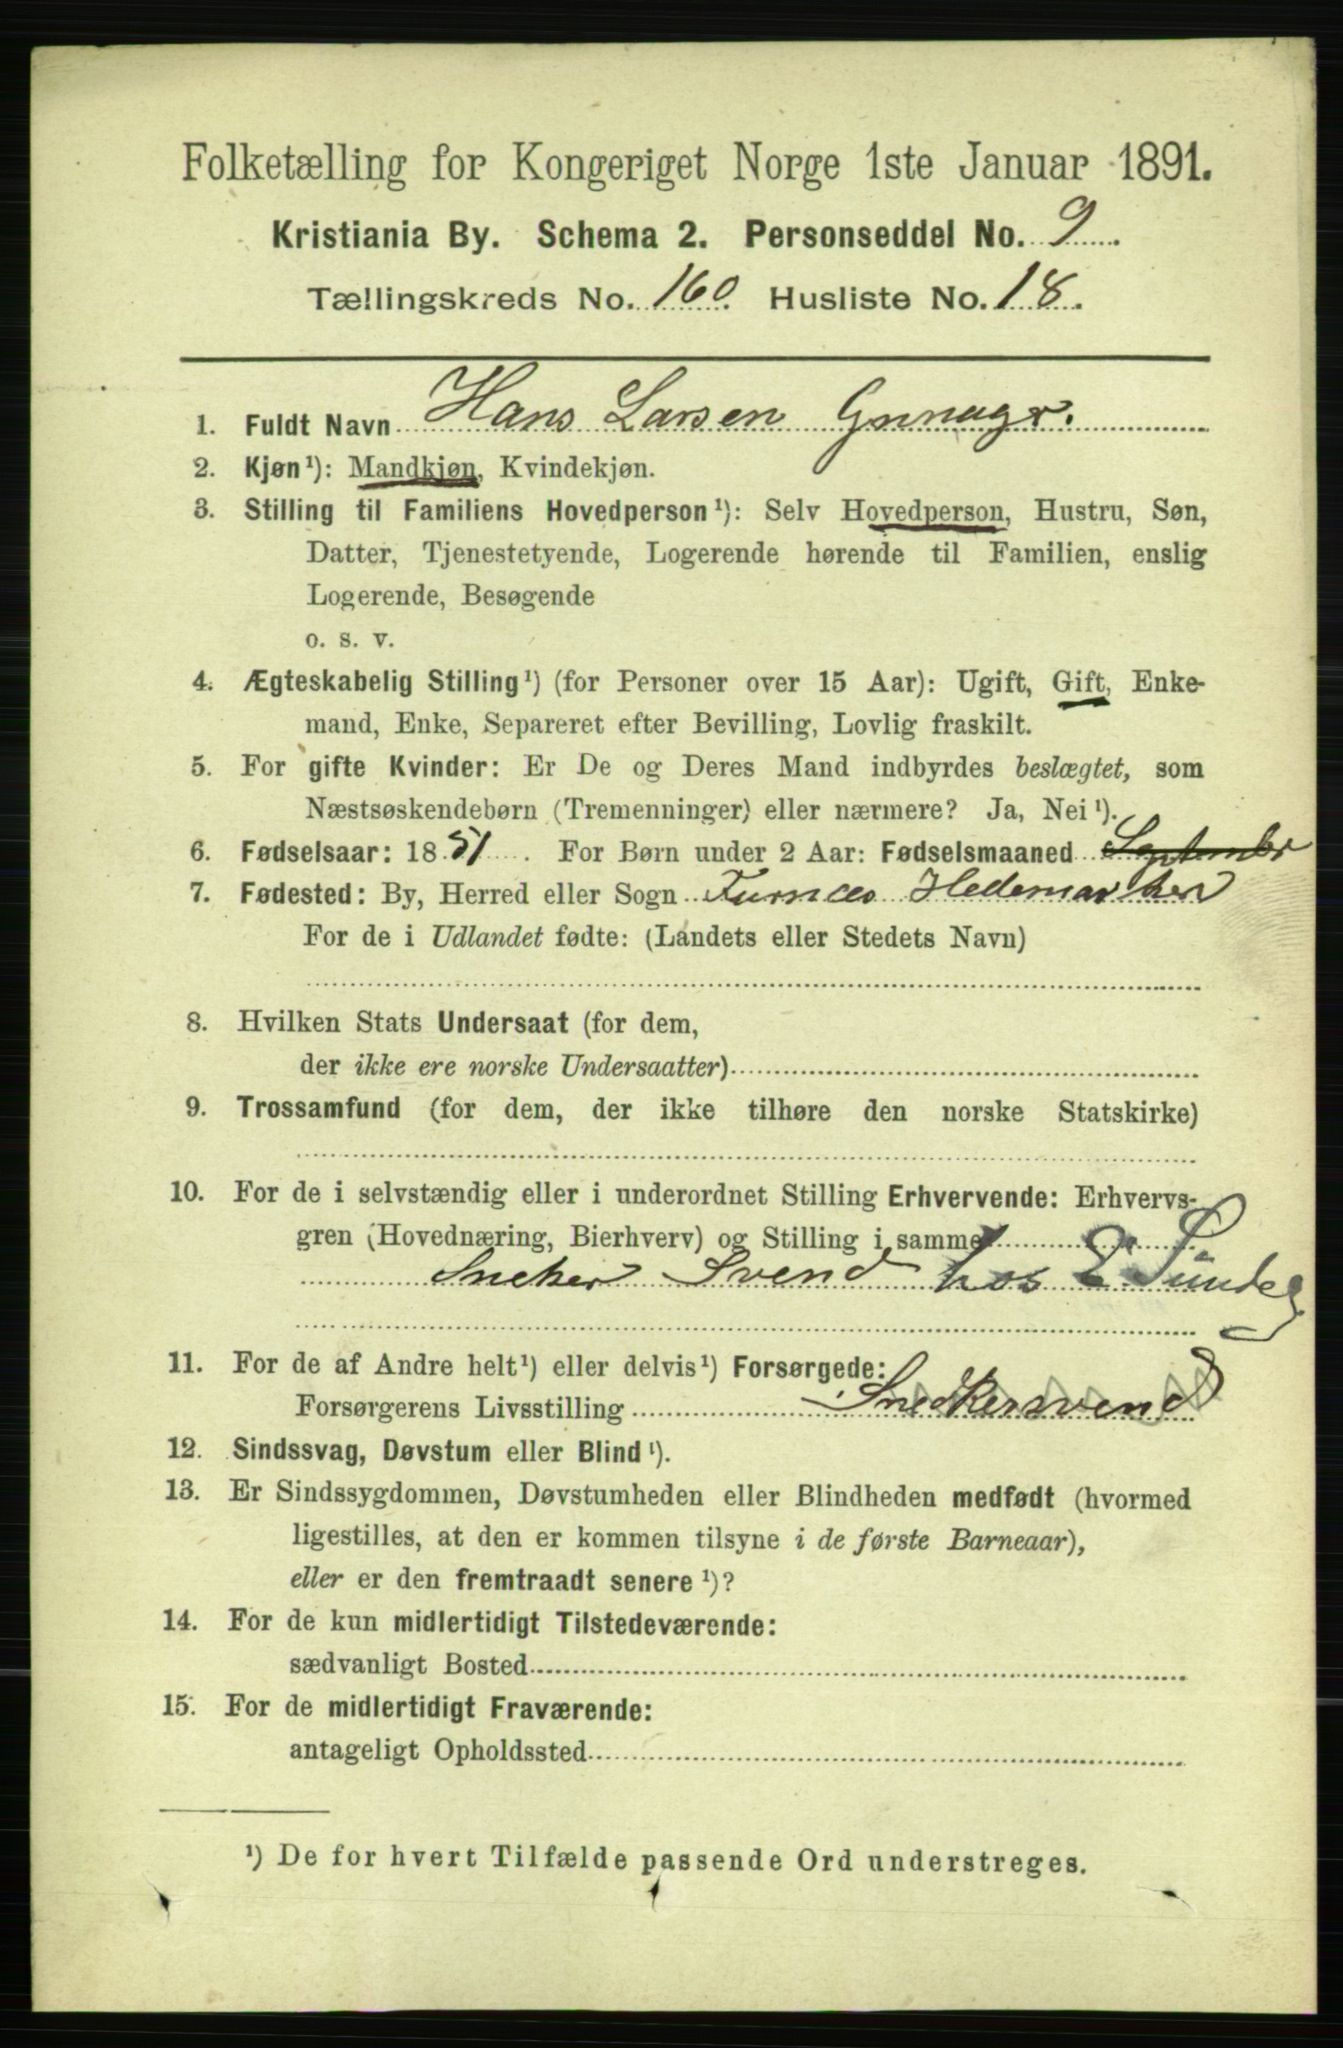 Folketælling for Kongeriget Norge 1ste Januar 1891.
Kristiania By. Schema 2. Personseddel No. 9
Tællingskreds No. 160. Husliste No. 18.
1. Fuldt Navn Hans Larsen
2. Kjøn¹): Mandkjøn, Kvindekjøn.
3. Stilling til Familiens Hovedperson¹): Selv Hovedperson, Hustru, Søn,
Datter, Tjenestetyende, Logerende hørende til Familien, enslig
Logerende, Besøgende
o. s. v.
4. Ægteskabelig Stilling¹) (for Personer over 15 Aar): Ugift, Gift, Enke-
mand, Enke, Separeret efter Bevilling, Lovlig fraskilt.
5. For gifte Kvinder: Er De og Deres Mand indbyrdes beslægtet, som
Næstsøskendebørn (Tremenninger) eller nærmere? Ja, Nei¹).
6. Fødselsaar: 1851. For Børn under 2 Aar: Fødselsmaaned September
7. Fødested: By, Herred eller Sogn Furnæs Hedemarken
For de i Udlandet fødte: (Landets eller Stedets Navn)
8. Hvilken Stats Undersaat (for dem,
der ikke ere norske Undersaatter)
9. Trossamfund (for dem, der ikke tilhøre den norske Statskirke)
10. For de i selvstændig eller i underordnet Stilling Erhvervende: Erhvervs-
gren (Hovednæring, Bierhverv) og Stilling i samme
Sneker Svend hos
11. For de af Andre helt¹) eller delvis¹) Forsørgede:
Forsørgerens Livsstilling Snedkersvend
12. Sindssvag, Døvstum eller Blind¹).
13. Er Sindssygdommen, Døvstumheden eller Blindheden medfødt (hvormed
ligestilles, at den er kommen tilsyne i de første Barneaar),
eller er den fremtraadt senere¹)?
14. For de kun midlertidigt Tilstedeværende:
sædvanligt Bosted
15. For de midlertidigt Fraværende:
antageligt Opholdssted
¹) De for hvert Tilfælde passende Ord understreges.